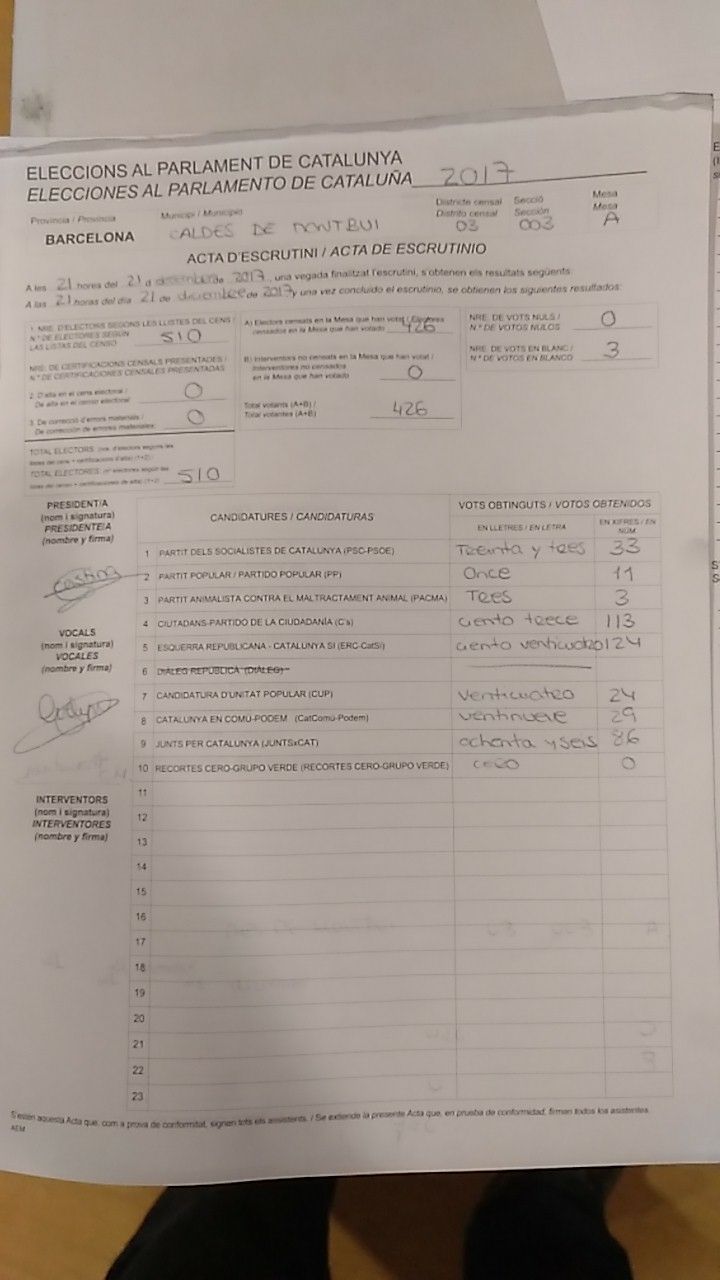 ELECCIONS AL PARLAMENT DE CATALUNYA
ELECCIONES AL PARLAMENTO DE CATALUÑA 2017
Provincia / Provincia
BARCELONA
Municipi / Municipio
CALDES DE MONTBUI
Districte censal
Distrito censal
03
Secció
Sección
003
Mesa
Mesa
A
ACTA D'ESCRUTINI / ACTA DE ESCRUTINIO
A les 21 hores del 21 d de 2017, una vegada finalitzat l'escrutini, s'obtenen els resultats següents:
A las 21 horas del día 21 de diciembre de 2017 y una vez concluido el escrutinio, se obtienen los siguientes resultados:
1. NRE. D'ELECTORS SEGONS LES LLISTES DEL CENS /
N.º DE ELECTORES SEGÚN
LAS LISTAS DEL CENSO
510
NRE. DE CERTIFICACIONS CENSALS PRESENTADES /
N.º DE CERTIFICACIONES CENSALES PRESENTADAS
2. D'alta en el cens electoral /
De alta en el censo electoral
0
3. De correcció d'errors materials /
De corrección de errores materiales:
0
TOTAL ELECTORS
TOTAL ELECTORES 510
A) Electors censats en la Mesa que han votat / Electores
censados en la Mesa que han votado 426
B) Interventors no censats en la Mesa que han votat /
Interventores no censados
en la Mesa que han votado
0
Total votants (A+B) /
Total votantes (A+B)
426
NRE. DE VOTS NULS /
N.º DE VOTOS NULOS
0
NRE. DE VOTS EN BLANC /
N.º DE VOTOS EN BLANCO
3
PRESIDENT/A
(nom i signatura)
PRESIDENTE/A
(nombre y firma)
VOCALS
(nom i signatura)
VOCALES
(nombre y firma)
INTERVENTORS
(nom i signatura)
INTERVENTORES
(nombre y firma)
CANDIDATURES / CANDIDATURAS
VOTS OBTINGUTS / VOTOS OBTENIDOS
EN LLETRES / EN LETRA
EN XIFRES / EN NÚM.
1 PARTIT DELS SOCIALISTES DE CATALUNYA (PSC-PSOE) Treinta y tres 33
2 PARTIT POPULAR / PARTIDO POPULAR (PP) Once 11
3 PARTIT ANIMALISTA CONTRA EL MALTRACTAMENT ANIMAL (PACMA) Tres 3
4 CIUTADANS-PARTIDO DE LA CIUDADANÍA (C's) ciento trece 113
5 ESQUERRA REPUBLICANA - CATALUNYA SÍ (ERC-CatSí) ciento venticuatro 124
6 DIÀLEG REPÚBLICA (DIÀLEG)
7 CANDIDATURA D'UNITAT POPULAR (CUP) Venticuatro 24
8 CATALUNYA EN COMÚ-PODEM (CatComú-Podem) Ventinueve 29
9 JUNTS PER CATALUNYA (JUNTSxCAT) ochenta y seis 86
10 RECORTES CERO-GRUPO VERDE (RECORTES CERO-GRUPO VERDE) cero 0
11
12
13
14
15
16
17
18
19
20
21
22
23
S'estén aquesta Acta que, com a prova de conformitat, signen tots els assistents. / Se extiende la presente Acta que, en prueba de conformidad, firman todos los asistentes.